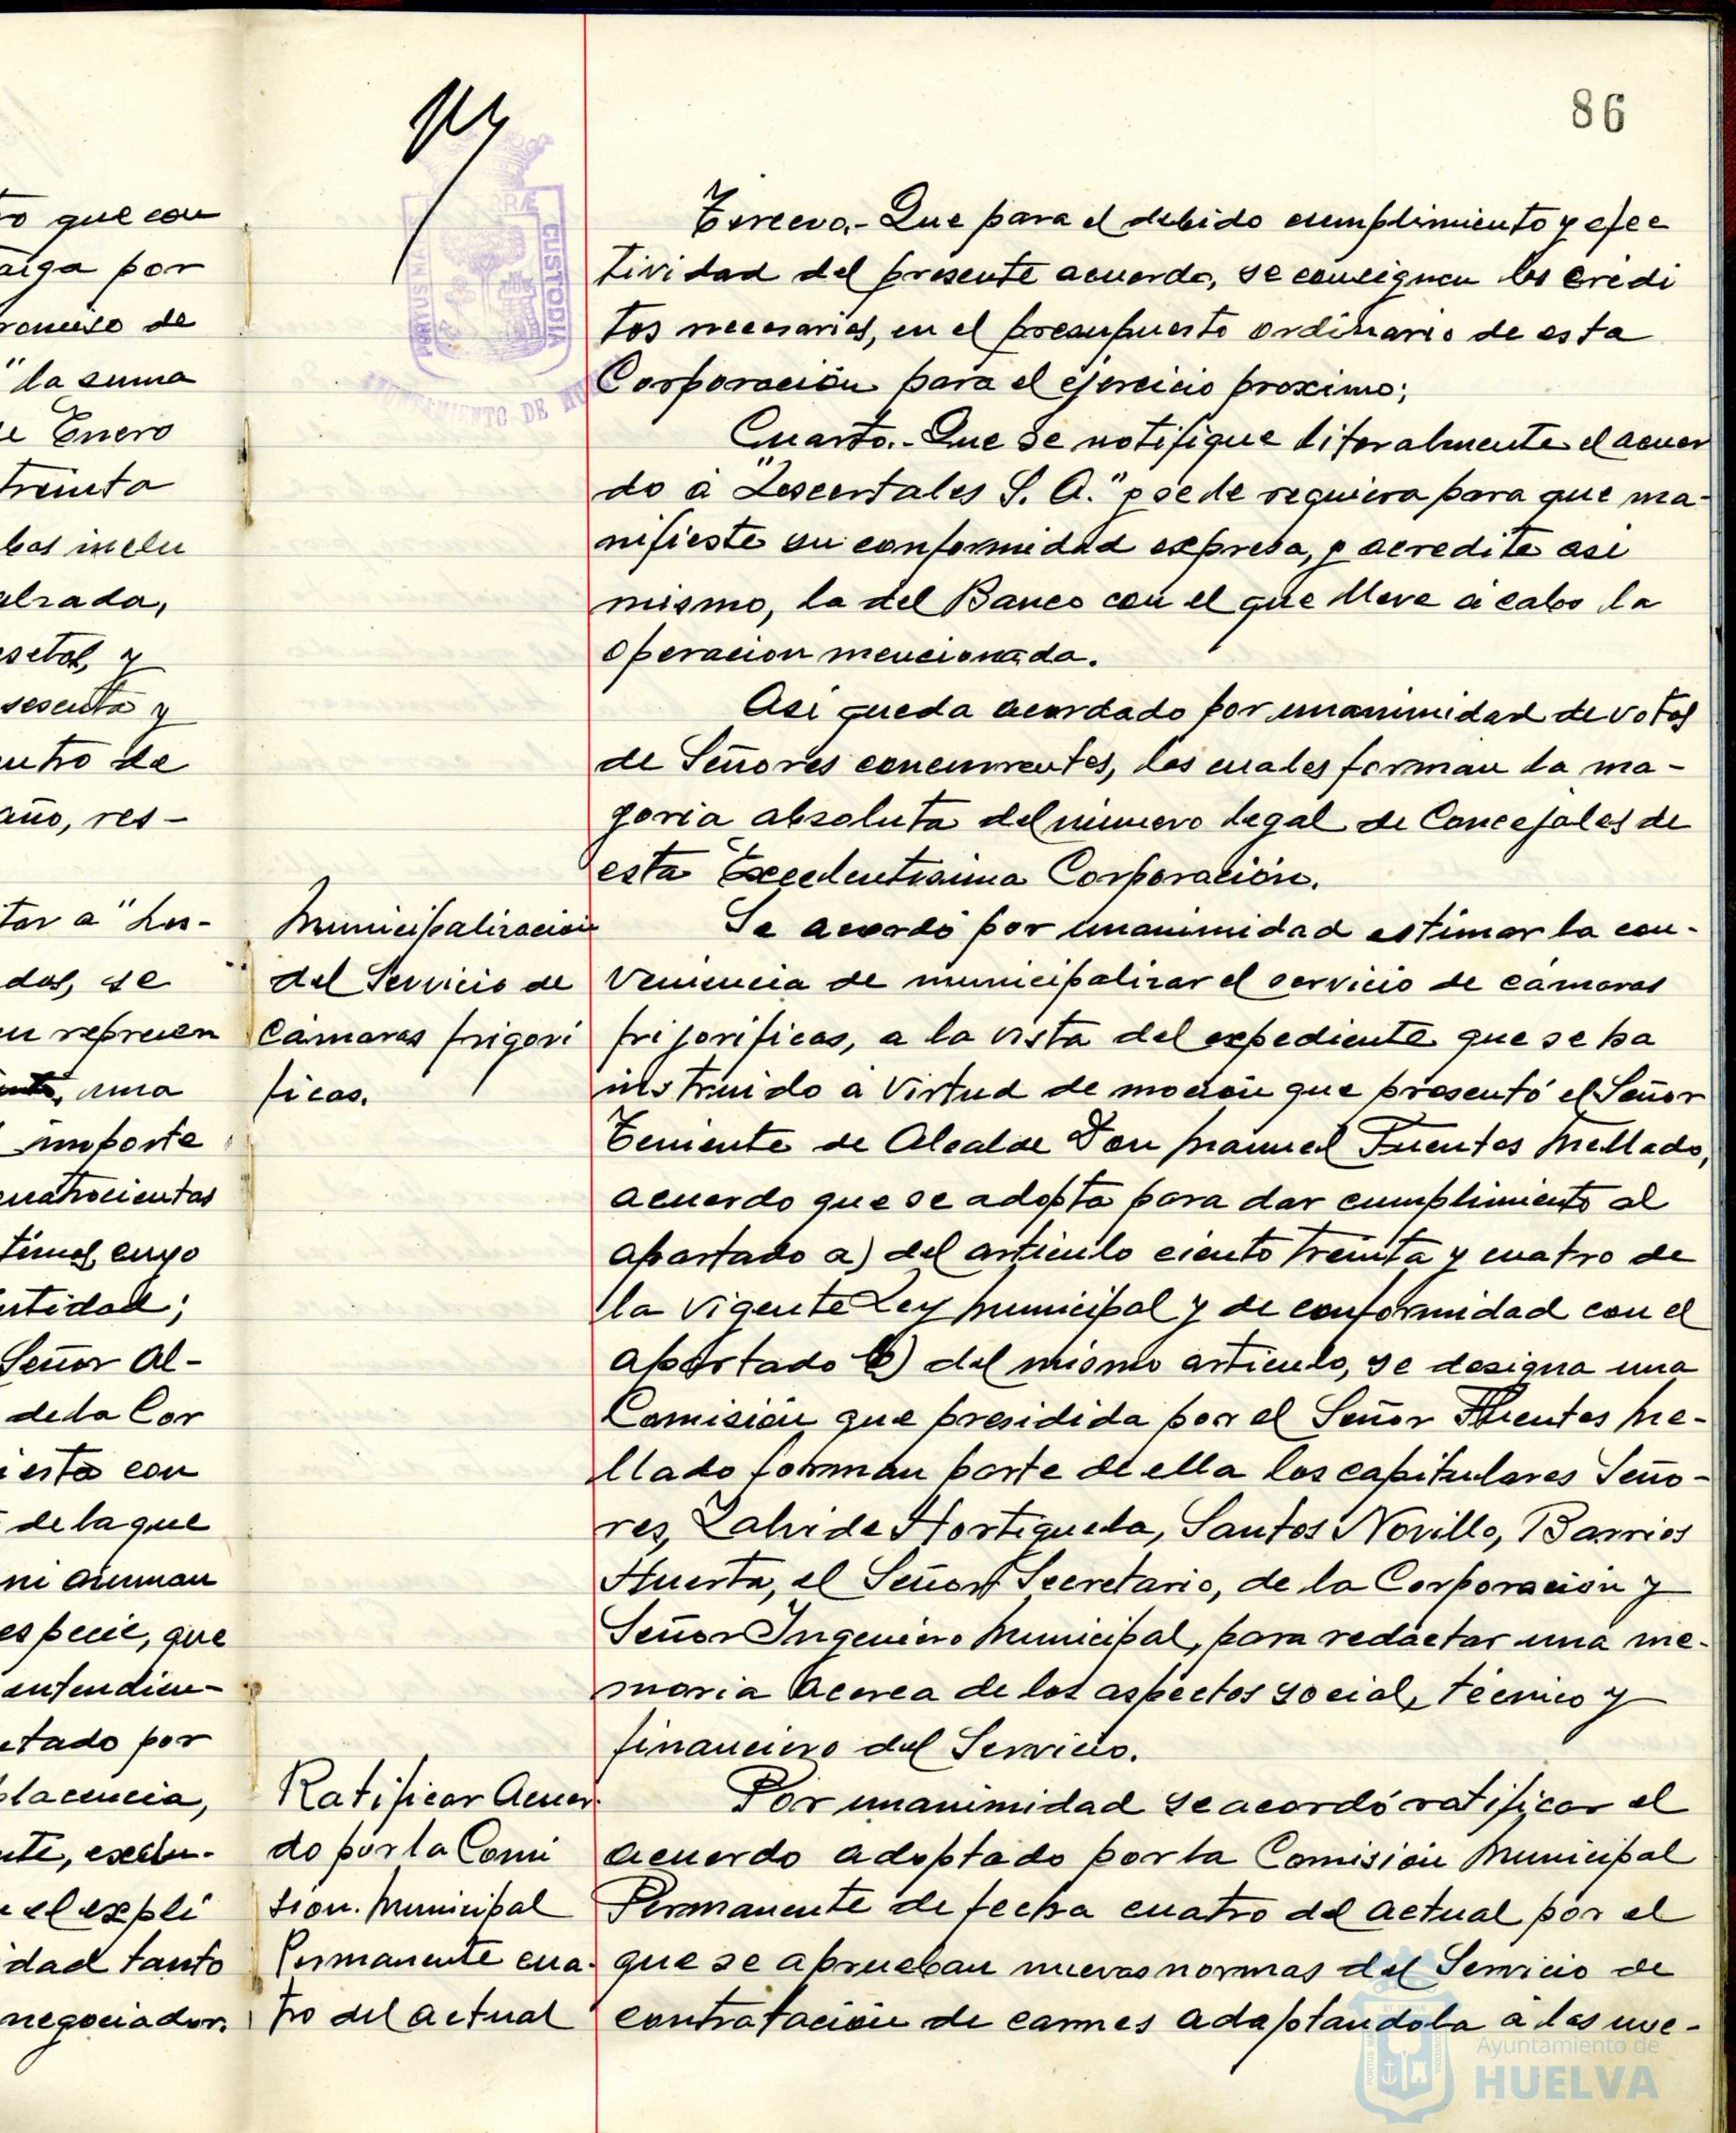 86
ro que con
aiga por
romiso de
"la suma
e Enero
treinta
bas inclu
alzada,
setas, y
sesenta y
entro de
año, res-
tar a "Los-
dos, se
en represen
una
importe
cuatrocientas
timos, cuyo
ntidad;
Señor Al-
de la Cor
iesta con
de la que
ni asuman
especie, que
entendien-
etado por
placencia,
nte, exclu-
el expli
idad tanto
negociador.
PORTUS MARIS
TERRÆ
CUSTODIA
AYUNTAMIENTO DE HU
Municipalización
del Servicio de
Cámaras frigori
ficas.
Ratificar Acuer
do por la Comi
sion. Municipal
Permanente cua-
tro del actual
Tercero.- Que para el debido cumplimiento y efec
tividad del presente acuerdo, se consignen los crédi
tos necesarios, en el presupuesto ordinario de esta
Corporación para el ejercicio proximo;
Cuarto.- Que se notifique literalmente el acuer
do á "Loscertales S. A." y se le requiera para que ma-
nifieste su conformidad expresa, y acredite asi
mismo, la del Banco con el que lleve á cabo la
operacion mencionada.
Asi queda acordado por unanimidad de votos
de Señores concurrentes, los cuales forman la ma-
yoria absoluta del número legal de Concejales de
esta Excelentisima Corporación.
Se acordó por unanimidad estimar la con-
veniencia de municipalizar el servicio de cámaras
frijorificas, a la vista del expediente que se ha
instruido a virtud de moción que presentó el Señor
Teniente de Alcalde Don Manuel Fuentes Mellado,
acuerdo que se adopta para dar cumplimiento al
apartado a) del articulo ciento treinta y cuatro de
la vigente Ley Municipal y de conformidad con el
apartado b) del mismo articulo, se designa una
Comisión que presidida por el Señor Fuentes Me-
llado forman parte de ella los capitulares Seño-
res, Zalvide Hortigueta, Santos Novillo, Barrios
Huerta, el Señor Secretario, de la Corporación y
Señor Ingeniero Municipal, para redactar una me-
moria acerca de los aspectos social, técnico y
financiero del Servicio.
Por unanimidad se acordó ratificar el
acuerdo adoptado por la Comisión Municipal
Permanente de fecha cuatro del actual por el
que se aprueban nuevas normas del Servicio de
contratación de carnes adaptandola á las nue-
Ayuntamiento de
HUELVA